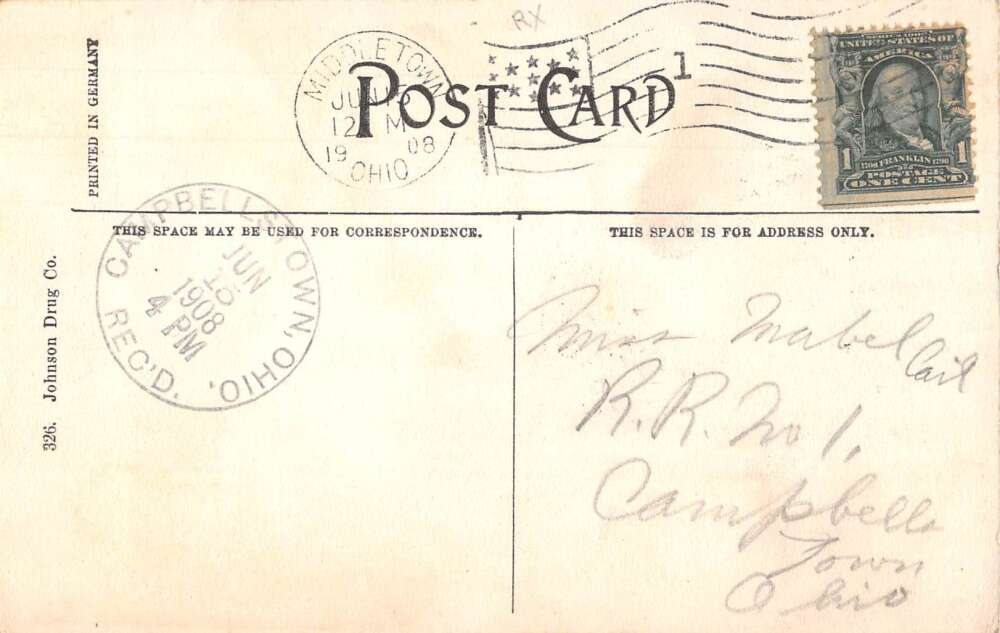 RX
POST CARD
PRINTED IN GERMANY
MIDDLETOWN
12 M
1908
OHIO
1
SERIES 1902
UNITED STATES OF
AMERICA
1 1706 FRANKLIN 1790 1
POSTAGE
ONE CENT
THIS SPACE MAY BE USED FOR CORRESPONDENCE.
THIS SPACE IS FOR ADDRESS ONLY.
CAMPBELLSTOWN, OHIO,
JUN
1908
4 PM
REC'D.
326. Johnson Drug Co.
Miss Mabel
R. R. No 1,
Campbells
Town
Ohio